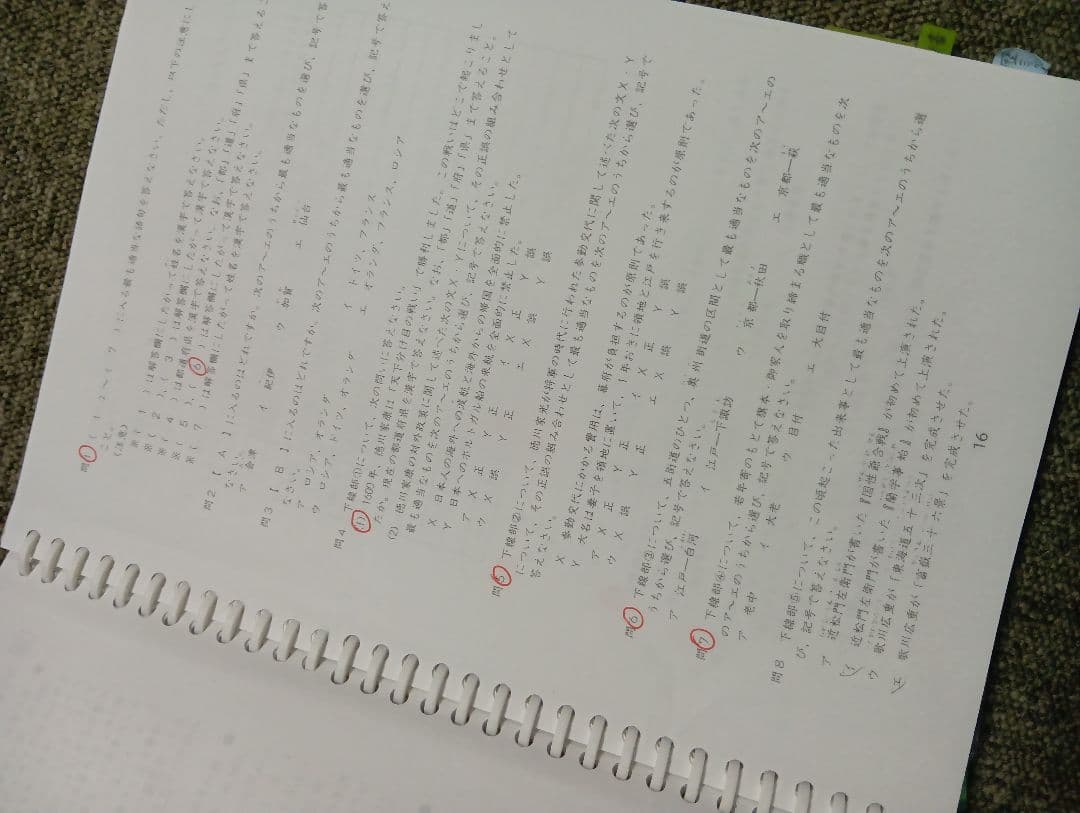 問1 ( 1 )~( 7 )に入る最も適当な語句を答えなさい。ただし、以下の注意にし
こと。
(注意)
※( 1 )は解答欄にしたがって姓名を漢字で答えなさい。
※( 2 )、( 3 )は都道府県を漢字で答えなさい。
※( 4 )は解答欄にしたがって漢字で答えなさい。
※( 5 )、( 6 )は解答欄にしたがって漢字で答えなさい。なお、「都」「道」「府」「県」まで答えるこ
※( 7 )は解答欄にしたがって姓名を漢字で答えなさい。
問2 【 A 】に入るのはどれですか。次のア~エのうちから最も適当なものを選び、記号で答
なさい。
ア 会津 イ 紀伊 ウ 加賀 エ 仙台
問3 【 B 】に入るのはどれですか。次のア~エのうちから最も適当なものを選び、記号で答え
なさい。
ア ロシア、オランダ イ ドイツ、フランス
ウ ロシア、ドイツ、オランダ エ オランダ、フランス、ロシア
問4 下線部①について、次の問いに答えなさい。
(1) 1600年、徳川家康は「天下分け目の戦い」で勝利しました。この戦いはどこで起こりまし
たか。現在の都道府県を漢字で答えなさい。なお、「都」「道」「府」「県」まで答えること。
(2) 徳川家康の対外政策に関して述べた次の文X・Yについて、その正誤の組み合わせとして
最も適当なものを次のア~エのうちから選び、記号で答えなさい。
X 日本人の海外への渡航と海外からの帰国を全面的に禁止した。
Y 日本へのポルトガル船の来航を全面的に禁止した。
ア X 正 Y 正 イ X 正 Y 誤
ウ X 誤 Y 正 エ X 誤 Y 誤
問5 下線部②について、徳川家光が将軍の時代に行われた参勤交代に関して述べた次の文X・Y
について、その正誤の組み合わせとして最も適当なものを次のア~エのうちから選び、記号で
答えなさい。
X 参勤交代にかかる費用は、幕府が負担するのが原則であった。
Y 大名は妻子を領地に置いて、1年おきに領地と江戸を行き来するのが原則であった。
ア X 正 Y 正 イ X 正 Y 誤
ウ X 誤 Y 正 エ X 誤 Y 誤
問6 下線部③について、五街道のひとつ、奥州街道の区間として最も適当なものを次のア~エの
うちから選び、記号で答えなさい。
ア 江戸―白河 イ 江戸―下諏訪 ウ 京都―秋田 エ 京都―萩
問7 下線部④について、若年寄のもとで旗本・御家人を取り締まる職として最も適当なものを次
のア~エのうちから選び、記号で答えなさい。
ア 老中 イ 大老 ウ 目付 エ 大目付
問8 下線部⑤について、この頃起こった出来事として最も適当なものを次のア~エのうちから選
び、記号で答えなさい。
ア 近松門左衛門が書いた『国性爺合戦』が初めて上演された。
イ 近松門左衛門が書いた『蘭学事始』が初めて上演された。
ウ 歌川広重が「東海道五十三次」を完成させた。
エ 歌川広重が「富嶽三十六景」を完成させた。
16